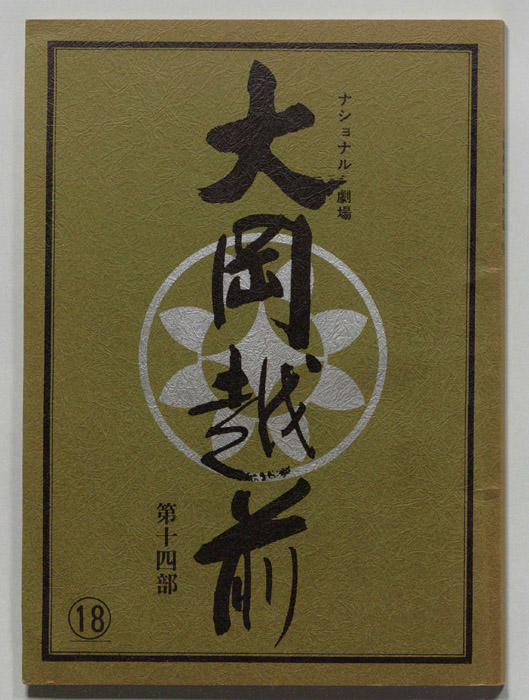 ナショナル劇場
大岡越前
第十四部
18